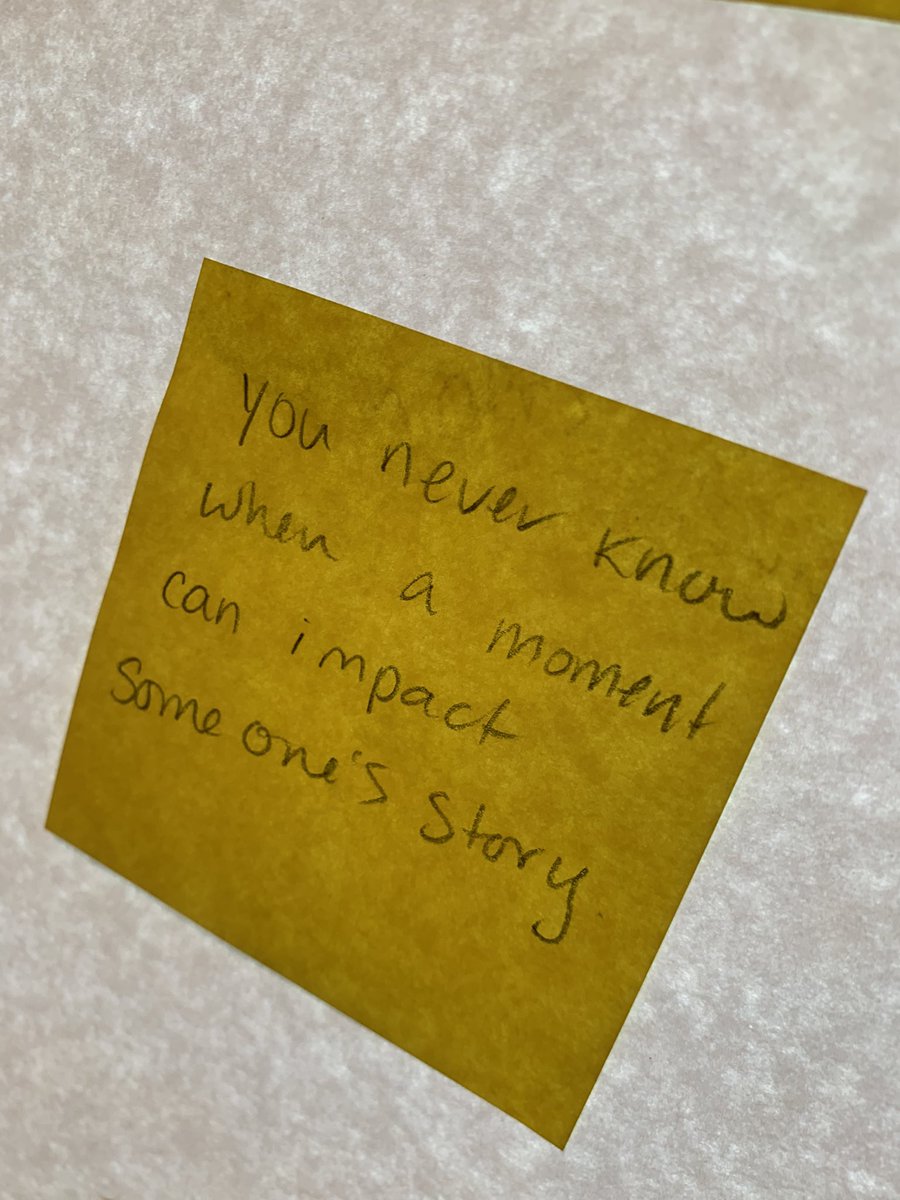 You never know
when a moment
can impact
someone's story